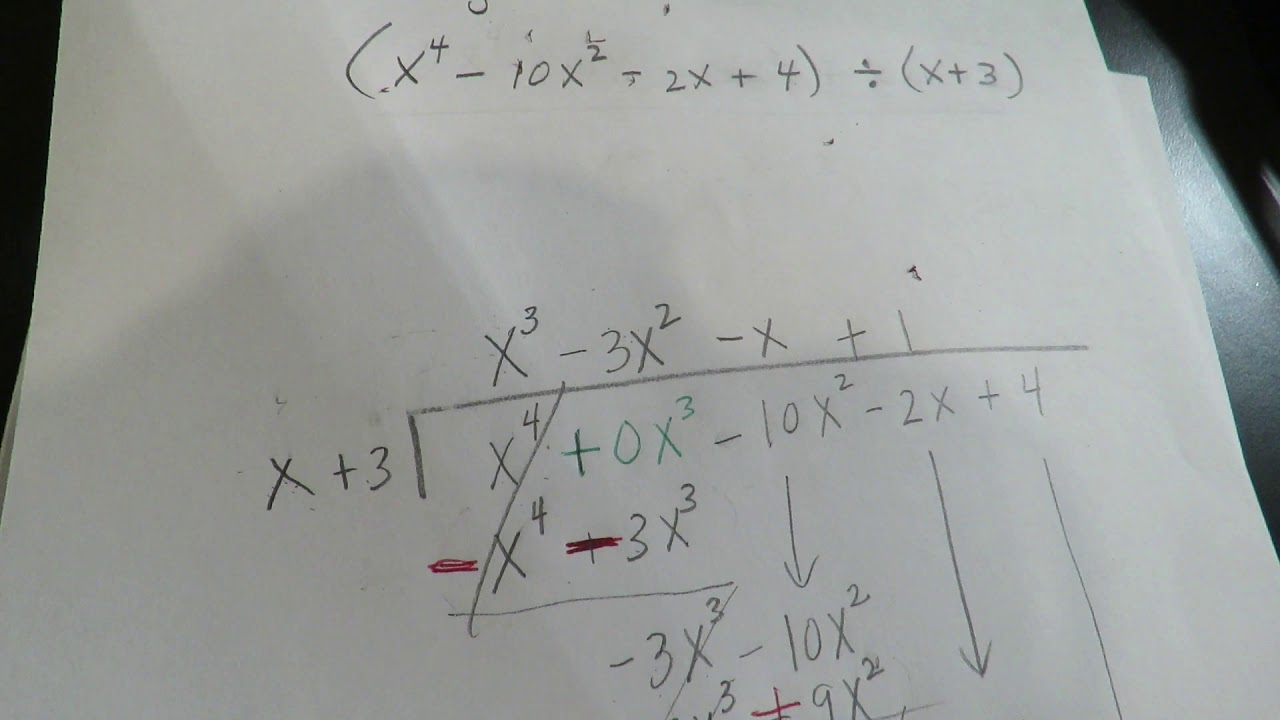 (x⁴ - 10x² - 2x + 4) ÷ (x+3)
x³ - 3x² - x + 1
x + 3 x⁴ + 0x³ - 10x² - 2x + 4
- x⁴ - 3x³
- 3x³ - 10x²
+ 9x²